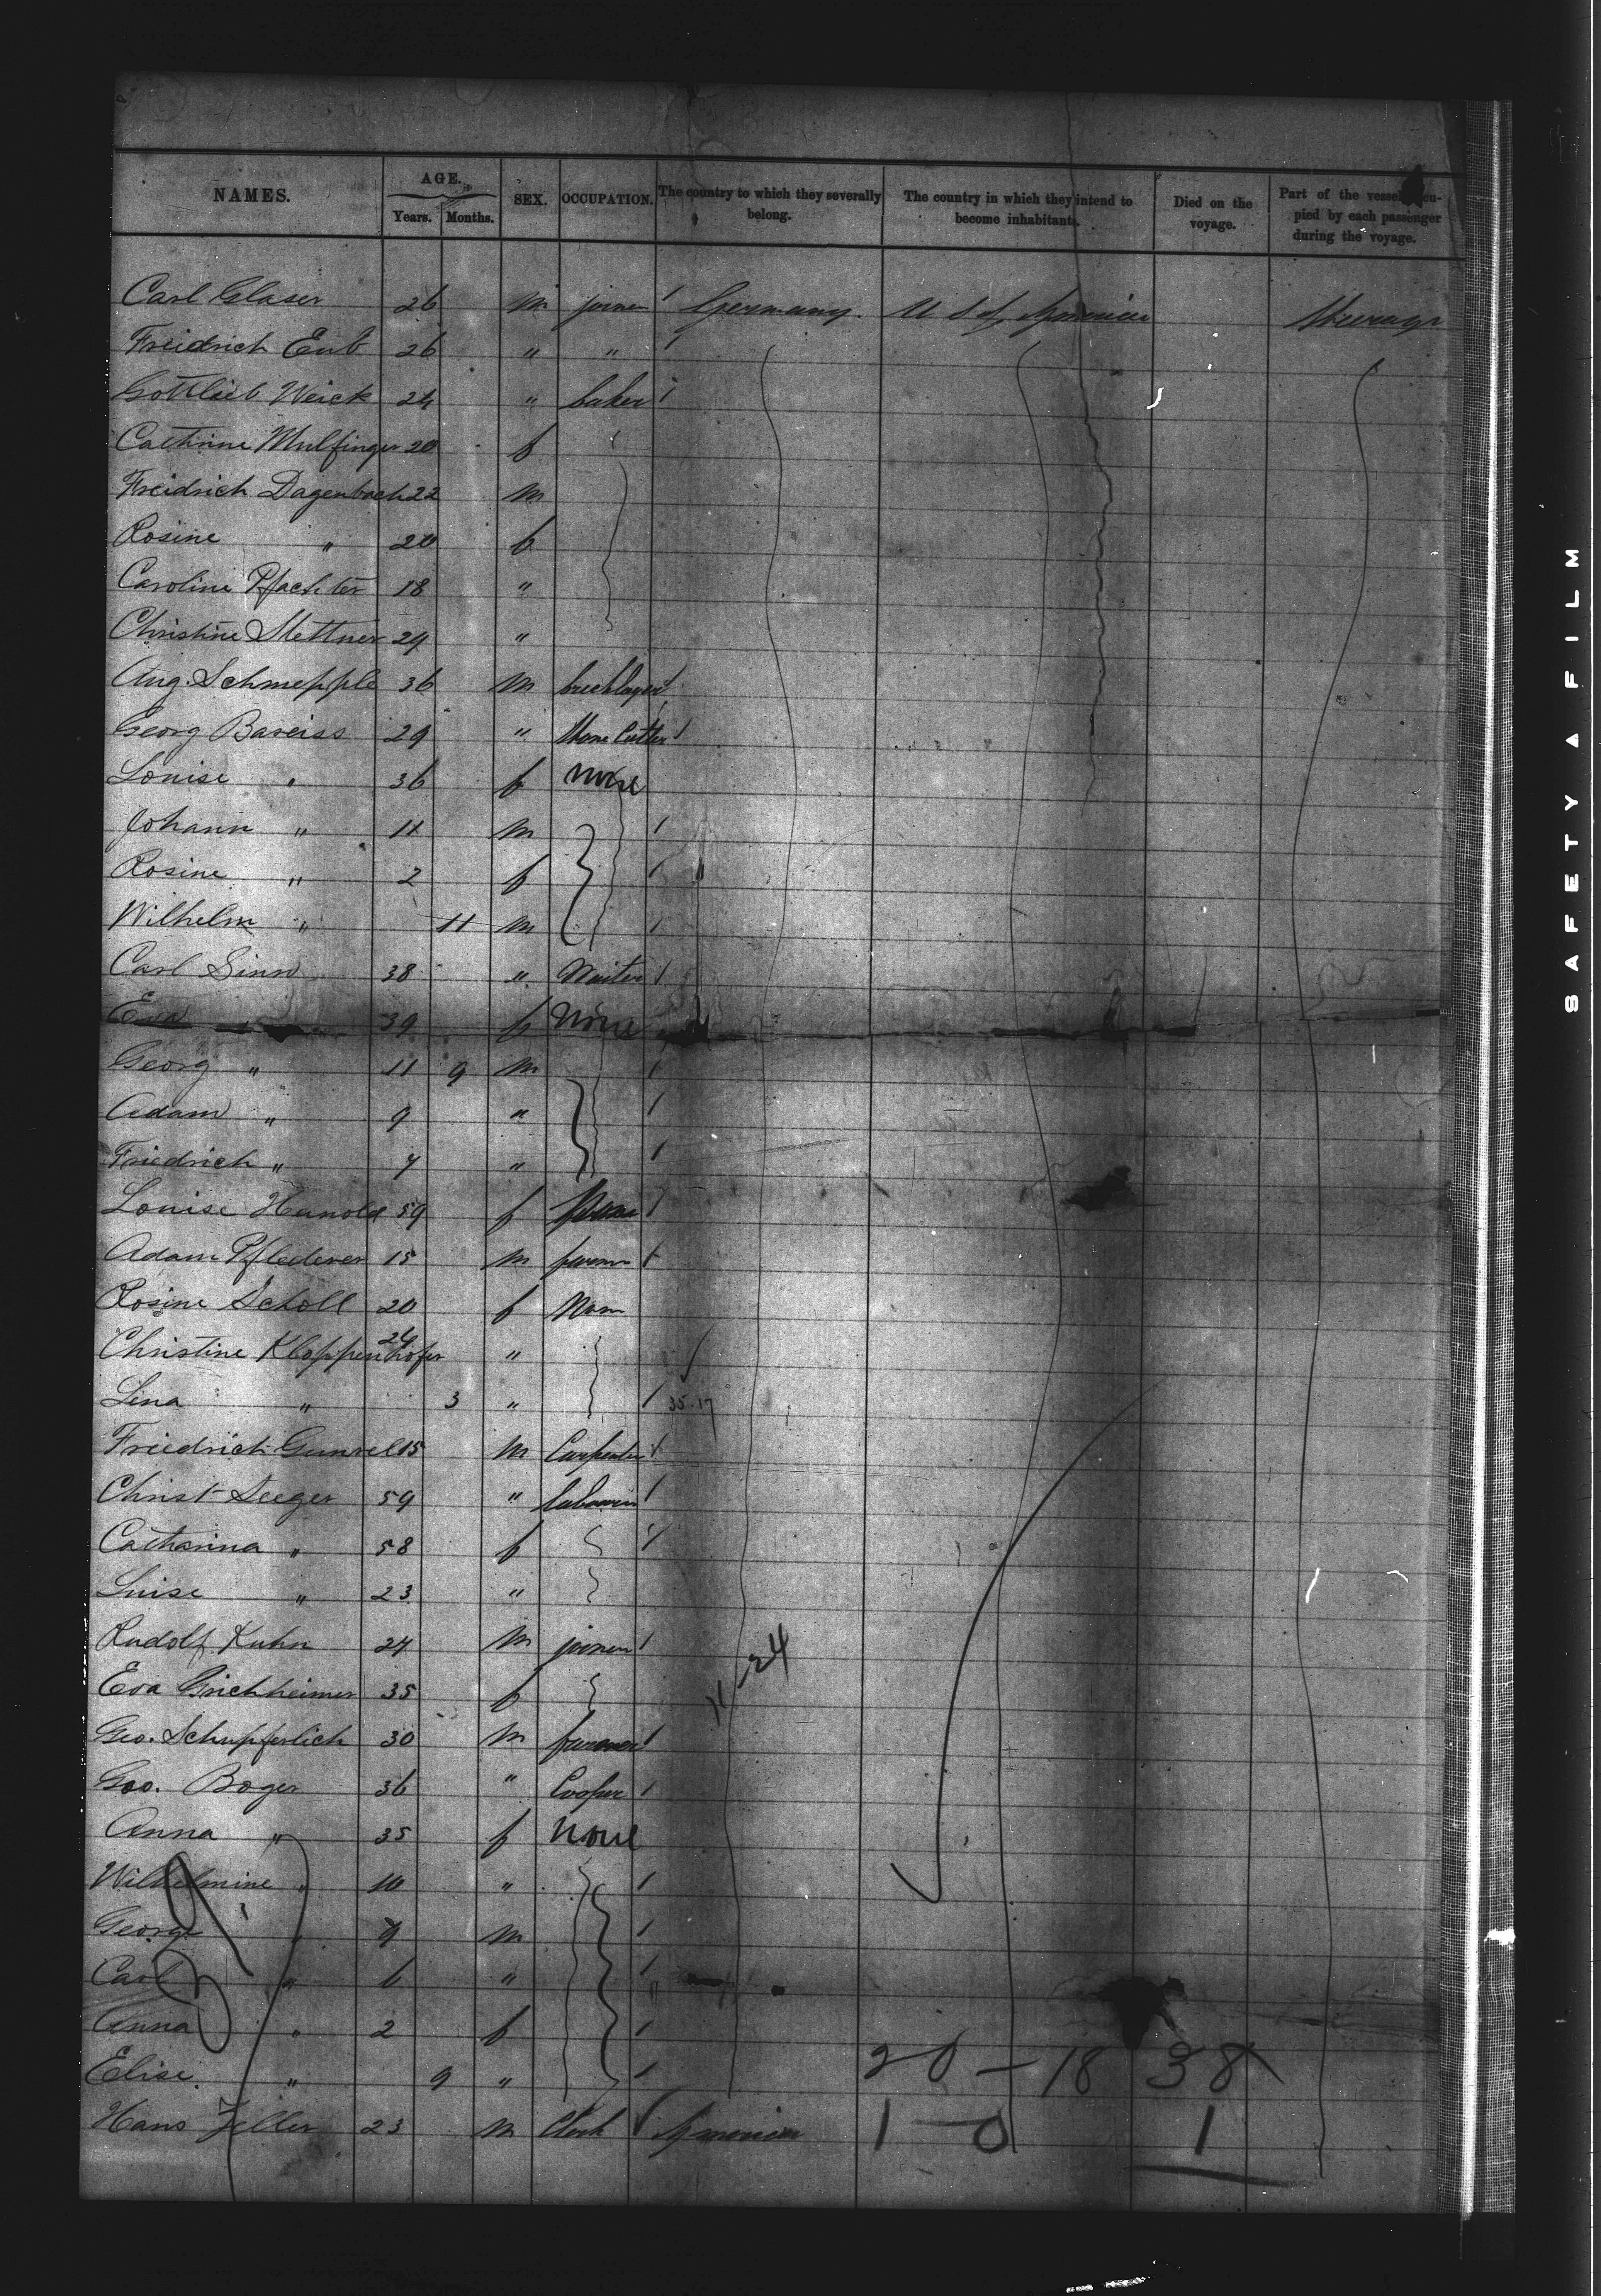 NAMES. AGE. Years. Months. SEX. OCCUPATION. The country to which they severally belong. The country in which they intend to become inhabitants. Died on the voyage. Part of the vessel occu-pied by each passenger during the voyage.
Carl Glaser 26 m joiner 1 Germany U S of America Steerage
Freidrich Eub 26 " " 1
Gottlieb Weick 24 " baker 1
Cathrine Mulfinger 20 f
Freidrich Dagenbach 22 m
Rosine " 20 f
Caroline Pfachter 18 "
Christine Stettner 24 "
Aug. Schmepple 36 m bricklayer 1
Georg Bareiss 29 " Stone Cutter 1
Louise " 36 f None
Johann " 11 m 1
Rosine " 2 f 1
Wilhelm " 11 m 1
Carl Sinn 38 " Waiter 1
Eva 39 f None
Georg " 11 9 m 1
Adam " 9 " 1
Friedrich " 7 " 1
Louise 59 f 1
Adam Pflederer 15 m farmer 1
Rosine Scholl 20 f None
Christine Kloppenhofer 24 "
Lina " 3 " 1 35.17
Friedrich 15 m Carpenter 1
Christ Seeger 59 " labourer 1
Catharina " 58 f 1
Luise " 23 "
Rudolf Kuhn 24 m joiner 1
Eva 35 f
Geo. Schupferlich 30 m farmer 1
Geo. Boger 36 " Cooper 1
Anna " 35 f None
Wilhelmine " 10 " 1
George " 9 m 1
Carl " 6 " 1
Anna " 2 f 1
Elise " 9 " 1 20 – 18 38
Hans Zeller 23 m Clerk America 1 – 0 1
11-24
SAFETY A FILM